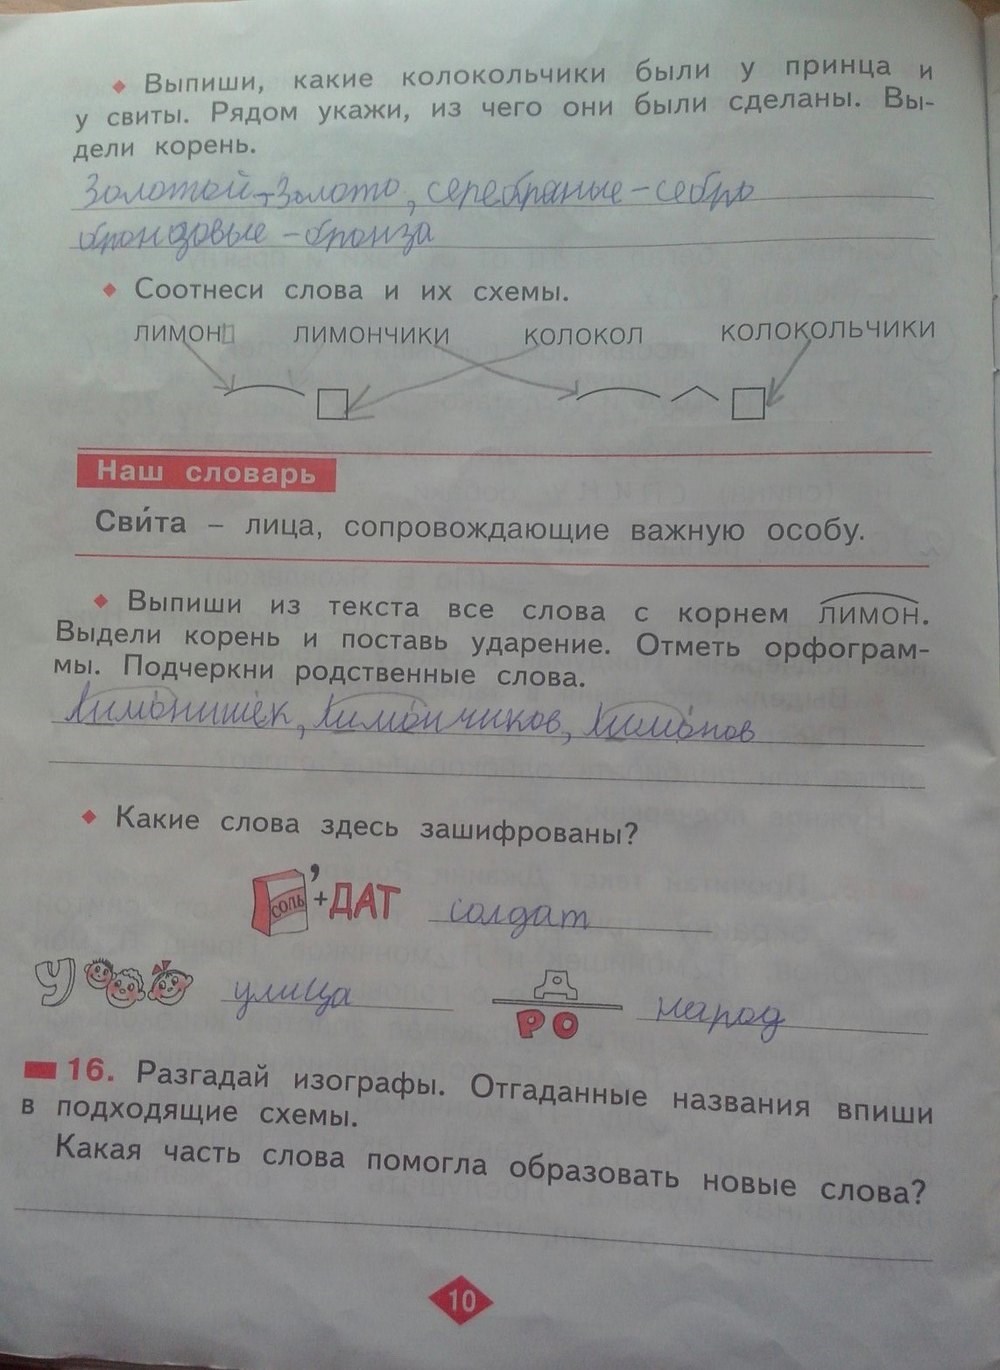 ♦ Выпиши, какие колокольчики были у принца и
у свиты. Рядом укажи, из чего они были сделаны. Вы-
дели корень.
Золотой-золото, серебраные-себро
бронзовые-бронза
♦ Соотнеси слова и их схемы.
ЛИМОН ЛИМОНЧИКИ КОЛОКОЛ КОЛОКОЛЬЧИКИ
Наш словарь
Сви́та – лица, сопровождающие важную особу.
♦ Выпиши из текста все слова с корнем ЛИМОН.
Выдели корень и поставь ударение. Отметь орфограм-
мы. Подчеркни родственные слова.
Лимо́нишек, Лимо́нчиков, Лимо́нов
♦ Какие слова здесь зашифрованы?
СОЛЬ ’ +ДАТ солдат
У улица НА РО народ
16. Разгадай изографы. Отгаданные названия впиши
в подходящие схемы.
Какая часть слова помогла образовать новые слова?
10